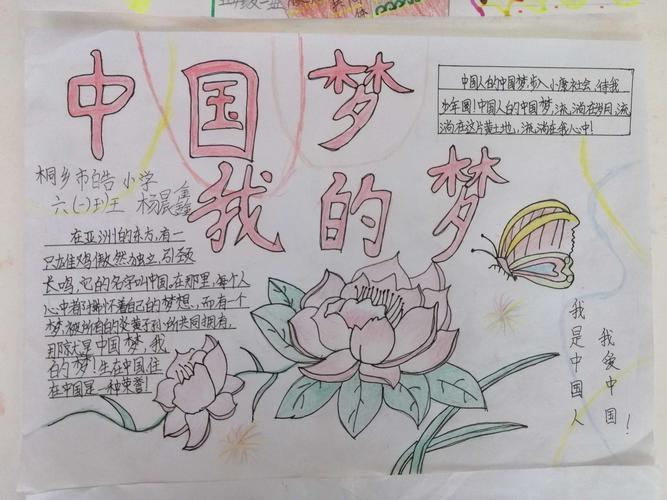 中国梦
我的梦
中国人的中国梦,步入小康社会,待我
少年圆!中国人的中国梦,流淌在岁月,流
淌在这片黄土地,流淌在我心中!
桐乡市 小学
六(一)班 杨晨鑫
在亚洲的东方,有一
只雄鸡傲然独立,引颈
长鸣,它的名字叫中国,在那里,每个人
心中都 怀着自己的梦想,而有一个
梦,被所有的炎黄子孙所共同拥有,
那就是中国梦,我
的梦!生在中国,住
在中国是一种荣誉!
我爱中国!
我是中国人